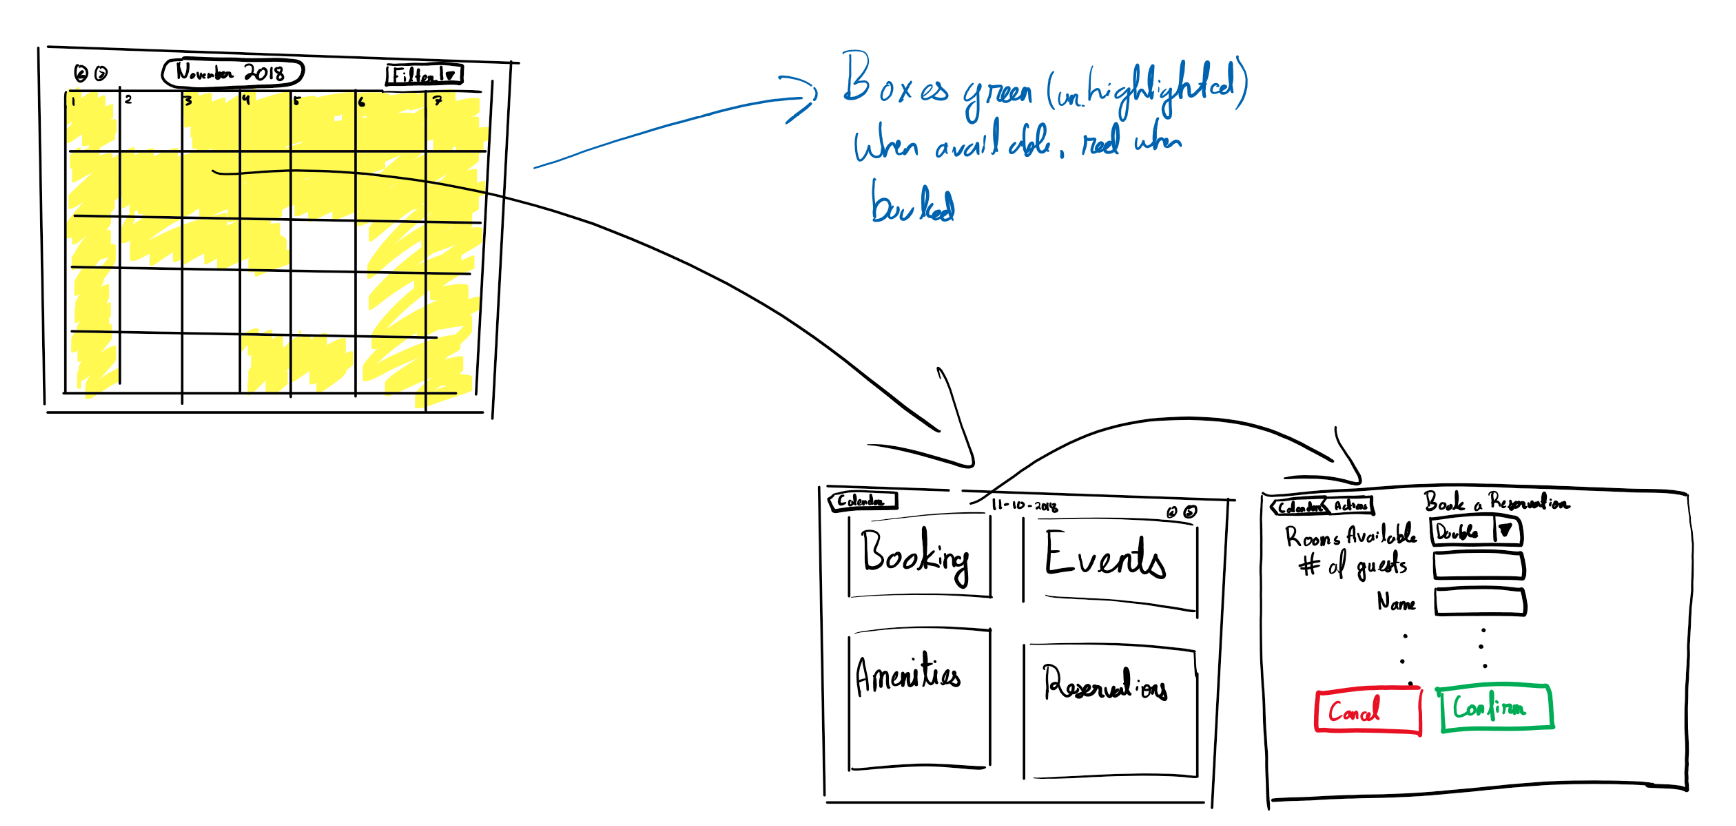 November 2018
Filter
1 2 3 4 5 6 7
Boxes green (un.highlighted)
when available, red when
booked
Calendar
11-10-2018
Booking
Events
Amenities
Reservations
Calendar Actions
Book a Reservation
Rooms Available Double
# of guests
Name
Cancel Confirm